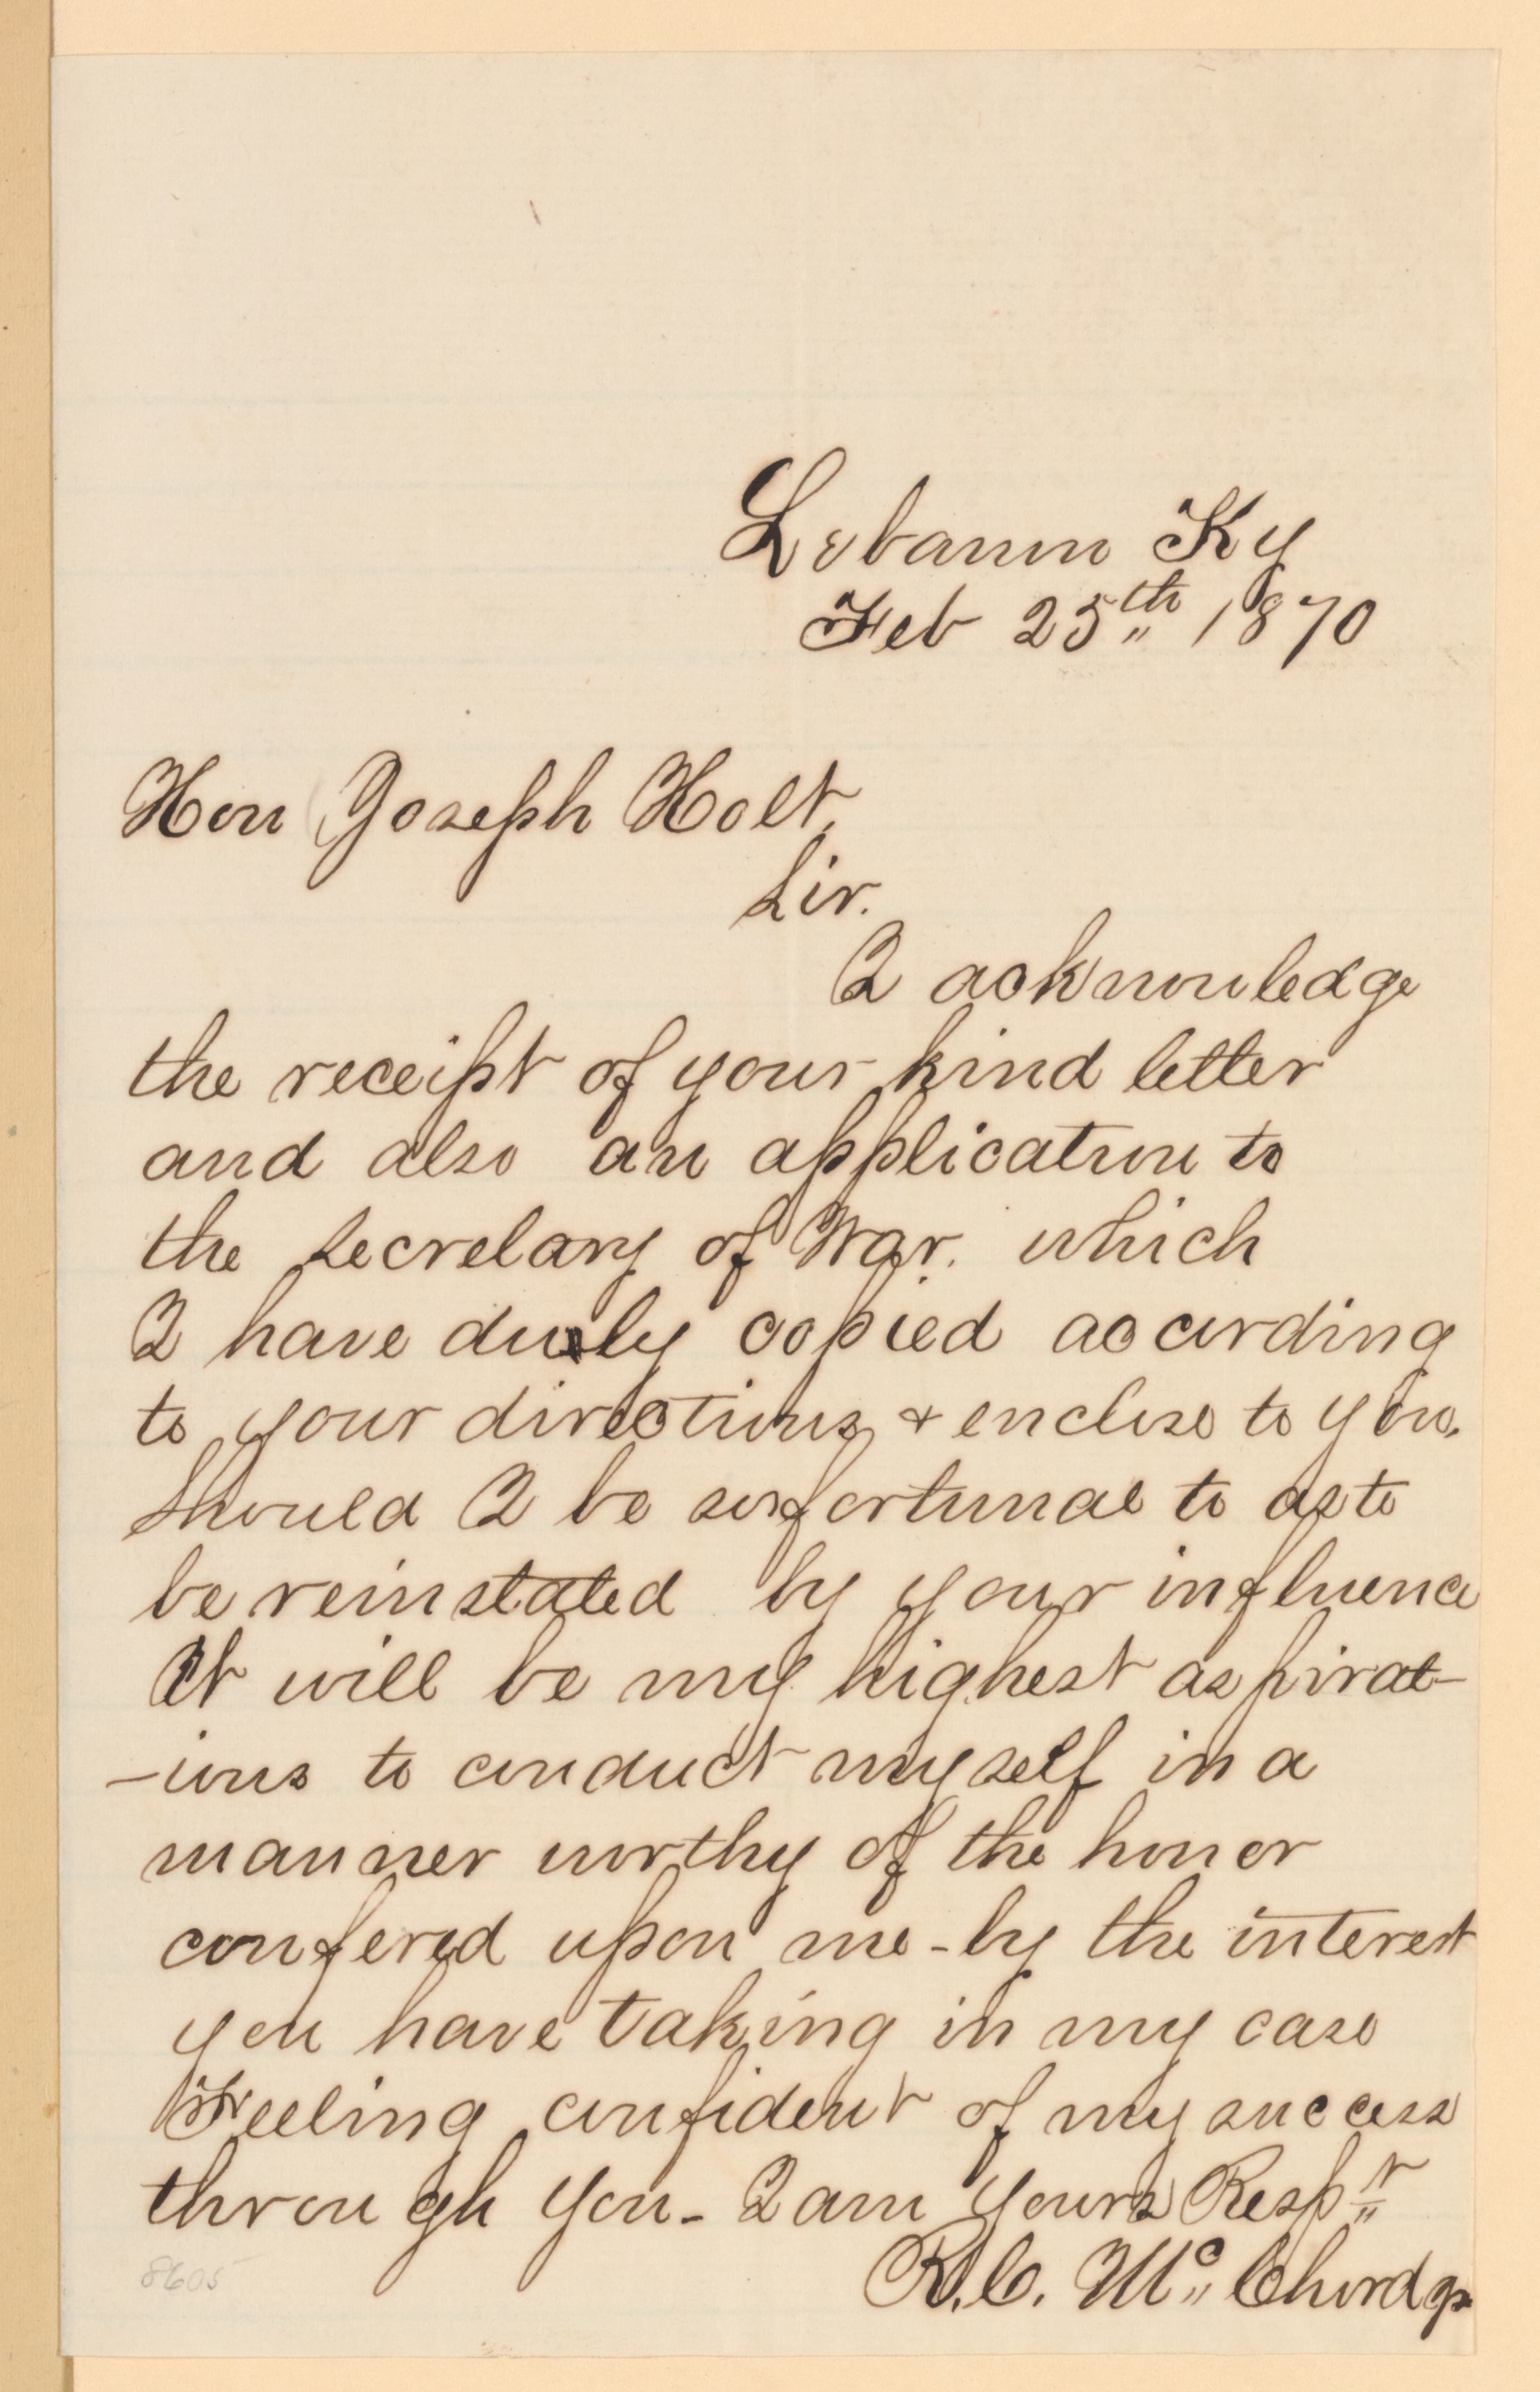 Lebanon Ky
Feb 25th 1870
Hon Joseph Holt,
Sir.
I acknowledge
the receipt of your kind letter
and also an application to
the Secretary of War. which
I have duly copied according
to your directions & enclose to you.
Should I be so fortunae to as to
be reinstated by your influence
It will be my highest aspirat-
-ions to conduct myself in a
manner worthy of the honor
confered upon me - by the interest
you have taking in my case
Feeling confident of my success
through you - I am yours Respt
R. C. Mc Chord Jr
8605